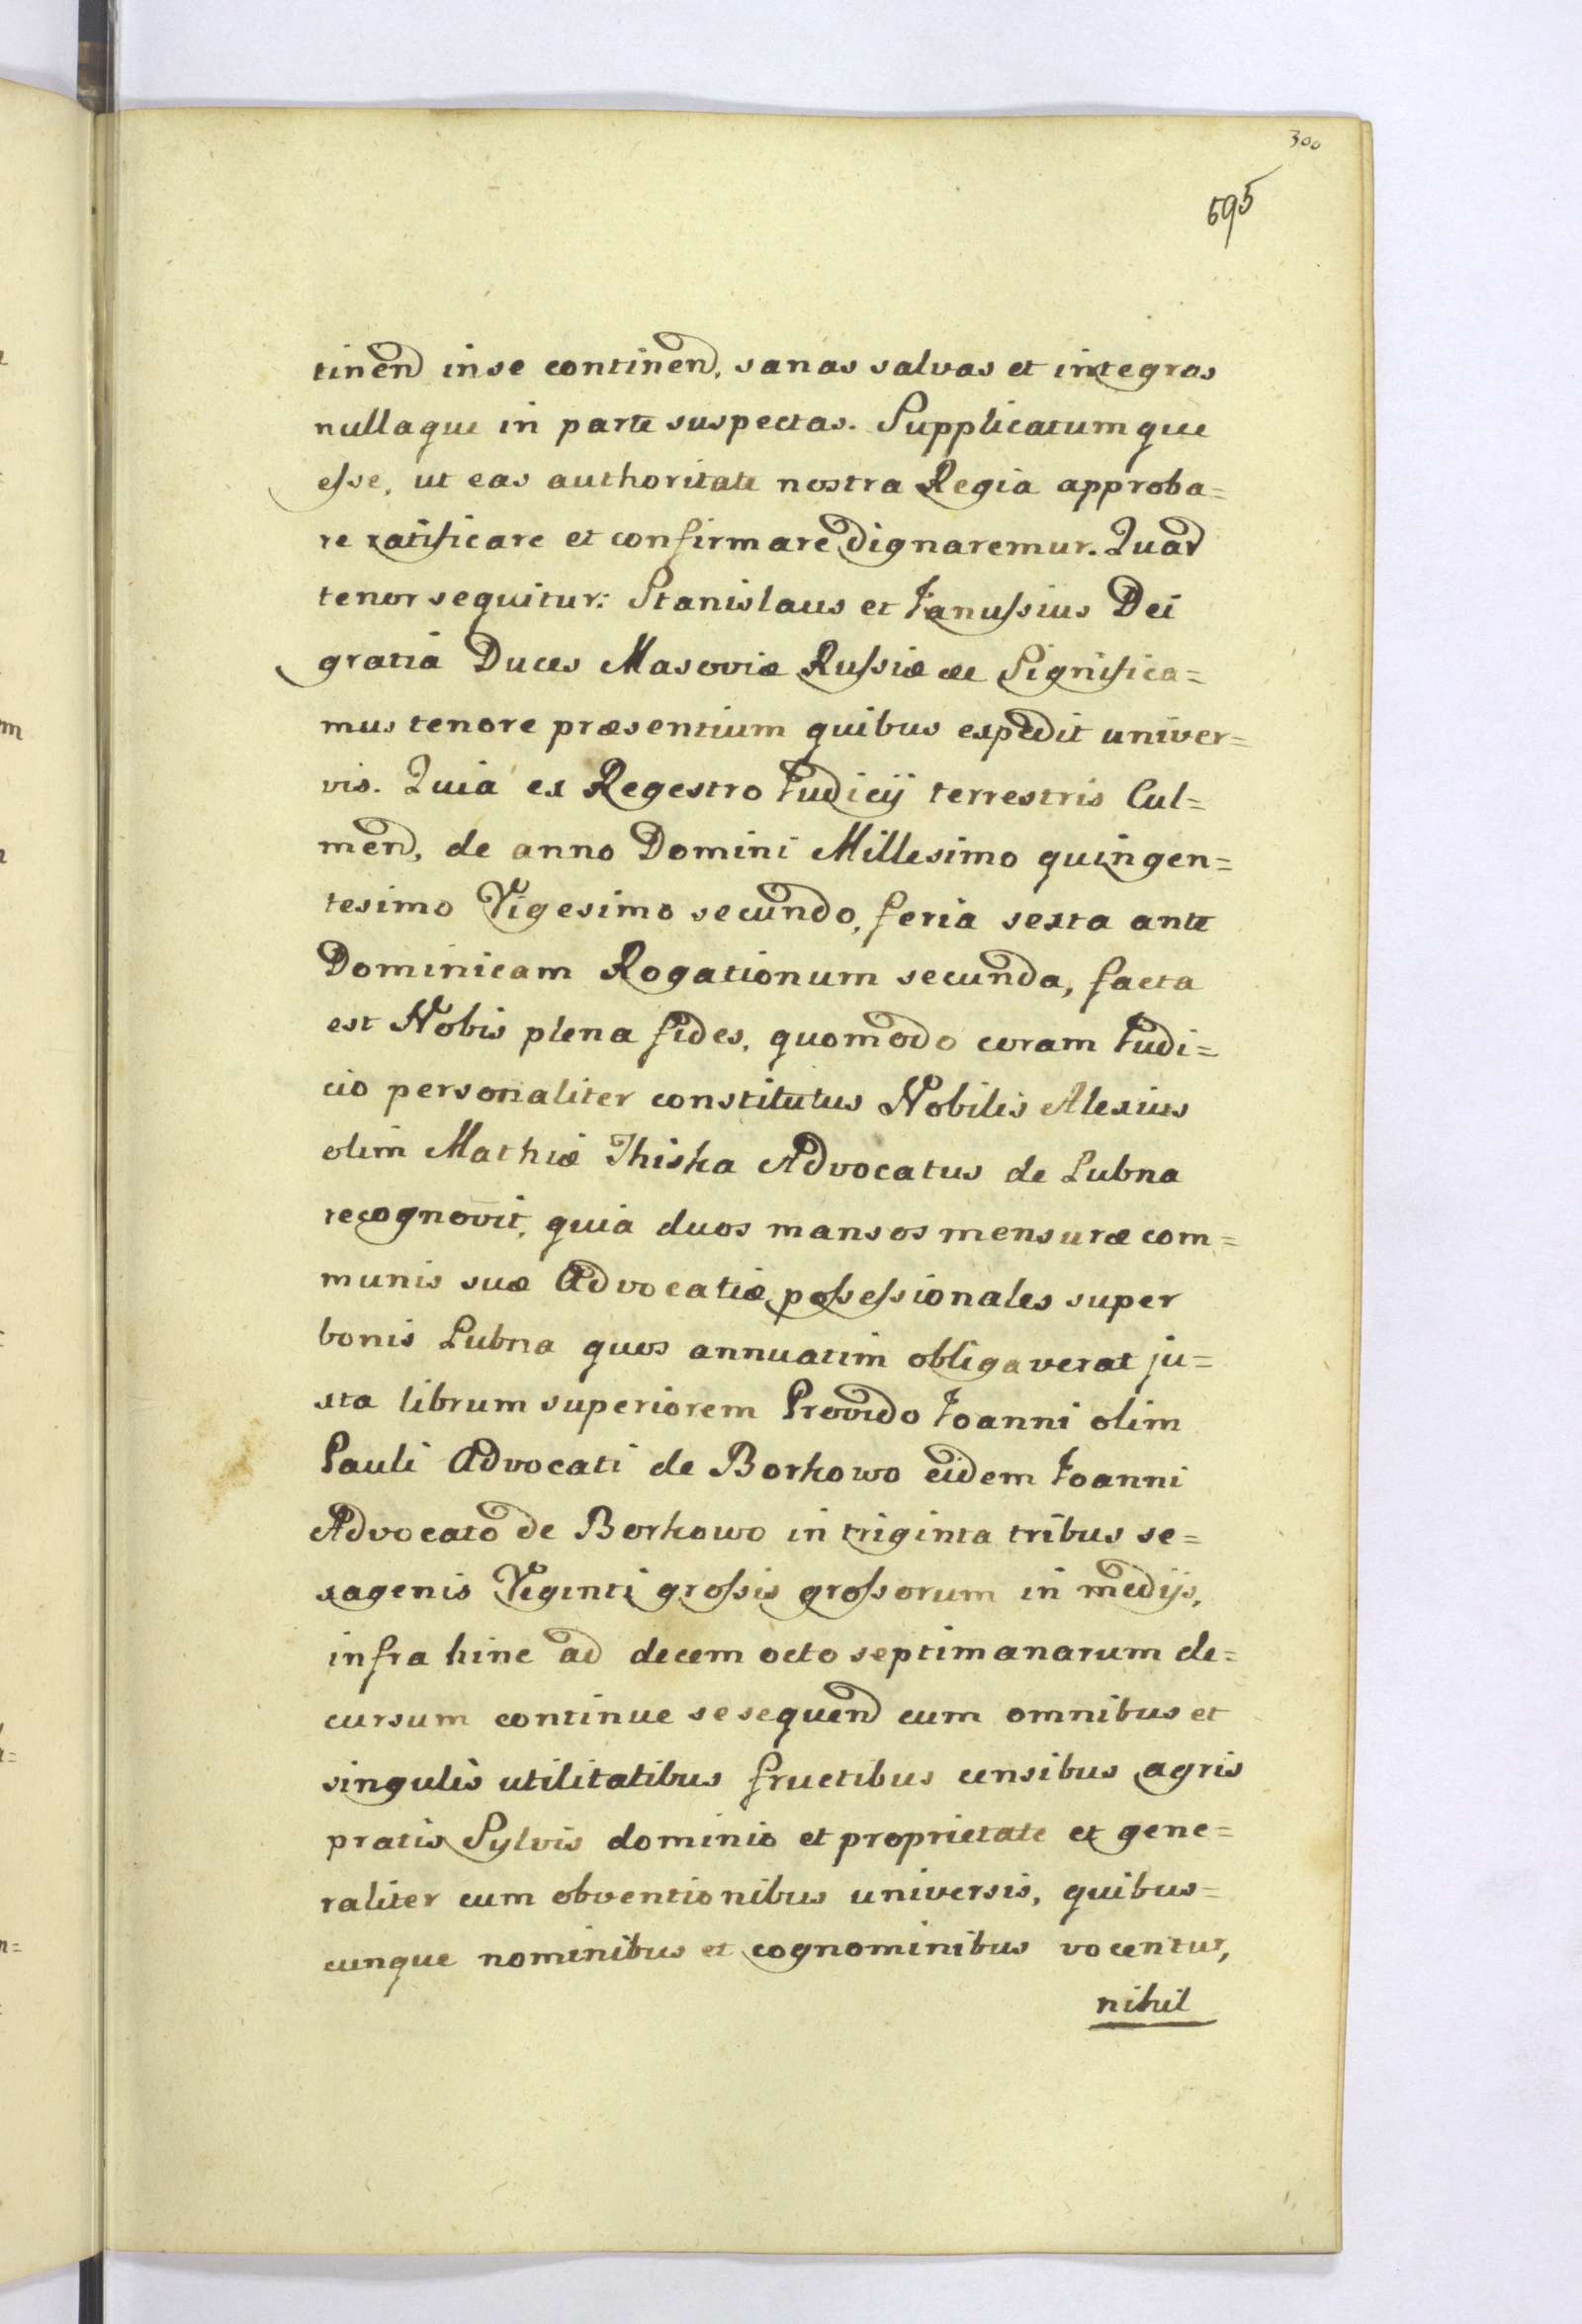 300
595
tinend in se continend, sanas salvas et integras
nullaque in parte suspectas. Supplicatumque
esse, ut eas authoritate nostra Regia approba=
re ratificare et confirmare dignaremur. Quar
tenor sequitur: Stanislaus et Janussius Dei
gratia Duces Masoviæ Russiæ &c Significa=
mus tenore præsentium quibus expedit univer=
vis. Quia ex Regestro Judicij terrestris Cul=
men, de anno Domini Millesimo quingen=
tesimo Vigesimo secundo, feria sexta ante
Dominicam Rogationum secunda, facta
est Nobis plena fides, quomodo coram Judi=
cio personaliter constitutus Nobilis Alexius
olim Mathiæ Thiska Advocatus de Lubna
recognovit, quia duos mansos mensuræ com=
munis suæ Advocatiæ possessionales super
bonis Lubna quos annuatim obligaverat ju=
xta librum superiorem Provido Joanni olim
Pauli Advocati de Borkowo eidem Joanni
Advocato de Borkowo in triginta tribus se=
xagenis Viginti grossis grossorum in medijs,
infra hinc ad decem octo septimanarum de=
cursum continue se sequend cum omnibus et
singulis utilitatibus fructibus censibus agris
pratis Sylvis dominio et proprietate et gene=
raliter cum obventionibus universis, quibus=
cunque nominibus et cognominibus vocentur,
nihil